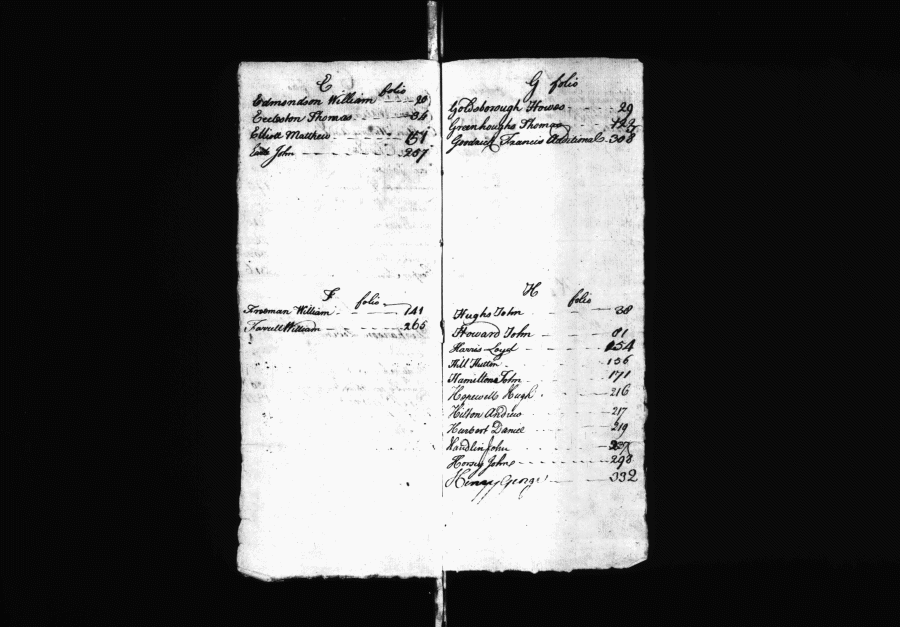 E folio
Edmondson William 20
Eccleston Thomas 34
Elliott Matthew 151
John 287
F folio
Freeman William 141
Farrell William 265
G folio
Goldsborough Howes 29
Greenhough Thomas
Goodrick Francis Additional 308
H folio
Hughs John 38
Howard John 81
Harris Loyd 154
Hill 156
Hamilton John 171
Hopewell Hugh 216
Hilton Andrew 217
Hurbert Daniel 219
Handlin John
Horsey John 298
Henry George 332